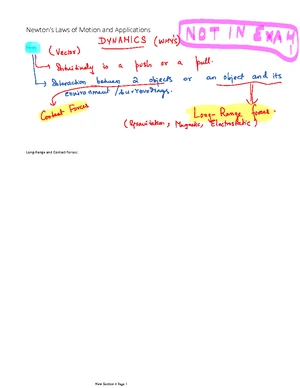 Newton's Laws of Motion and Applications
DYNAMICS (WHYS)
NOT IN EXAM
(Vector)
Intuitively is a push or a pull.
Interaction between 2 objects or an object and its
environment / surroundings.
Contact Forces
Long-Range forces.
(Gravitation, Magnetic, Electrostatic)
Long-Range and Contact Forces:
Page 1